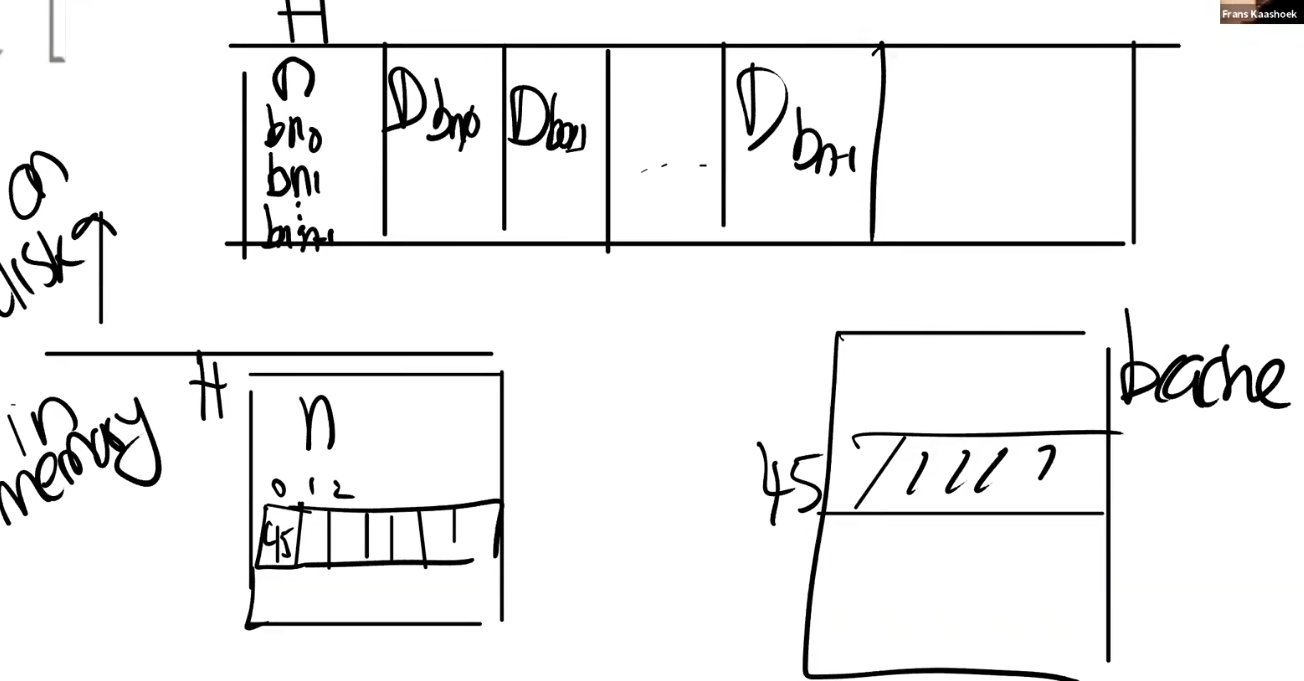 Frans Kaashoek
H
n
bn0
bn1
:
bn n-1
D bn0
D bn1
....
D bn-1
on
disk
in
memory
H
n
0 1 2
45
45
bcache